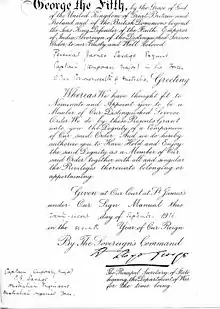 George the Fifth, by the Grace of God
of the United Kingdom of Great Britain and
Ireland and of the British Dominions beyond
the Seas King Defender of the Faith Emperor
of India, Sovereign of the Distinguished Service
Order, to our Trusty and Well Beloved
Savage
Captain (temporary Major) in Our
Greeting
Whereas We have thought fit to
Nominate and Appoint you to be a
Member of Our Distinguished Service
Order We do by these Presents Grant
unto you the Dignity of a Companion
of Our said Order And we do hereby
authorise you to Have Hold and Enjoy
the said Dignity as a Member of Our
said Order together with all and singular
the Privileges thereunto belonging or
appertaining.
Given at Our Court at St. James's
under Our Sign Manual this
day of
in the Year of Our Reign
By The Sovereign's Command
The Principal Secretary of State
having the Department of War
for the time being
Captain (temporary Major)
Savage
Australian